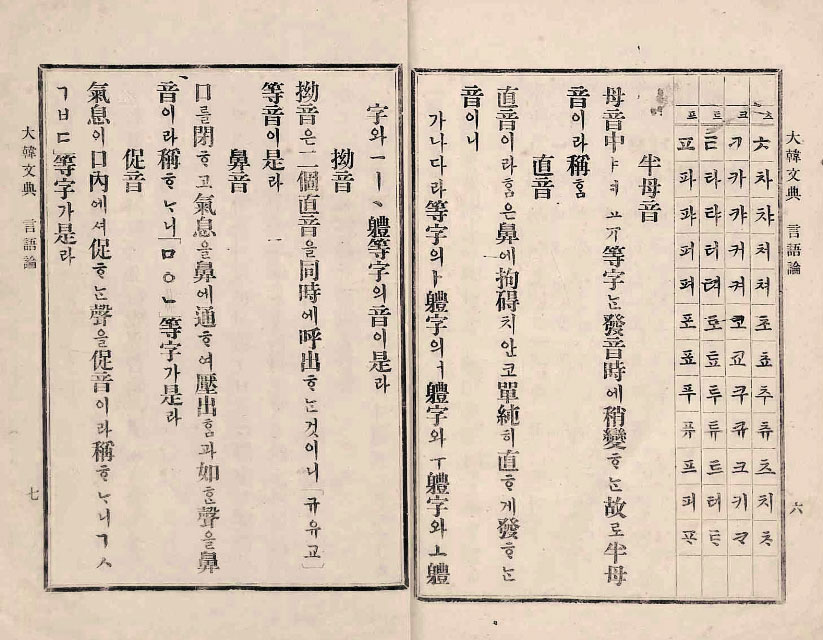 大韓文典 言語論 六
츠 ㅊ 차 챠 처 쳐 초 쵸 추 츄 츠 치 ᄎᆞ
크 ㅋ 카 캬 커 켜 코 쿄 쿠 큐 크 키 ᄏᆞ
트 ㅌ 타 탸 터 텨 토 툐 투 튜 트 티 ᄐᆞ
프 ㅍ 파 퍄 퍼 펴 포 표 푸 퓨 프 피 ᄑᆞ
半母音
母音中ㅑㅕㅛㅠ等字ᄂᆞᆫ發音時에稍變ᄒᆞᄂᆞᆫ故로半母
音이라稱ᄒᆞᆷ
直音
直音이라ᄒᆞᆷ은鼻에拘碍치안코單純히直ᄒᆞ게發ᄒᆞᄂᆞᆫ
音이니
가나다라等字의ㅏ軆字의ㅓ軆字와ㅜ軆字와ㅗ軆
字와ㅡㅣㆍ軆等字의音이是라
拗音
拗音은二個直音을同時에呼出ᄒᆞᄂᆞᆫ것이니「규유교」
等音이是라
鼻音
口를閉ᄒᆞ고氣息을鼻에通ᄒᆞ여壓出ᄒᆞᆷ과如ᄒᆞᆫ聲을鼻
音이라稱ᄒᆞᄂᆞ니「ㅁㅇㄴ」等字가是라
促音
氣息이口內에셔促ᄒᆞᄂᆞᆫ聲을促音이라稱ᄒᆞᄂᆞ니ㄱㅅ
ㄱㅂㄷ」等字가是라
大韓文典 言語論 七